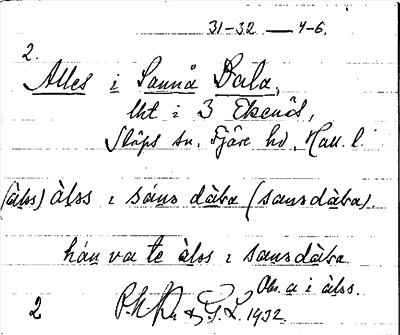 31-32 — 4-6.
2.
Alles i Sannå Dala,
lht i 3 Ekenäs,
Släps sn, Fjäre hd, Hall. l.
(àlss) àlss i sáns dàba (sansdàba).
hán va te àlss i sansdàba.
Obs. a i àlss.
2 G. L. 1932